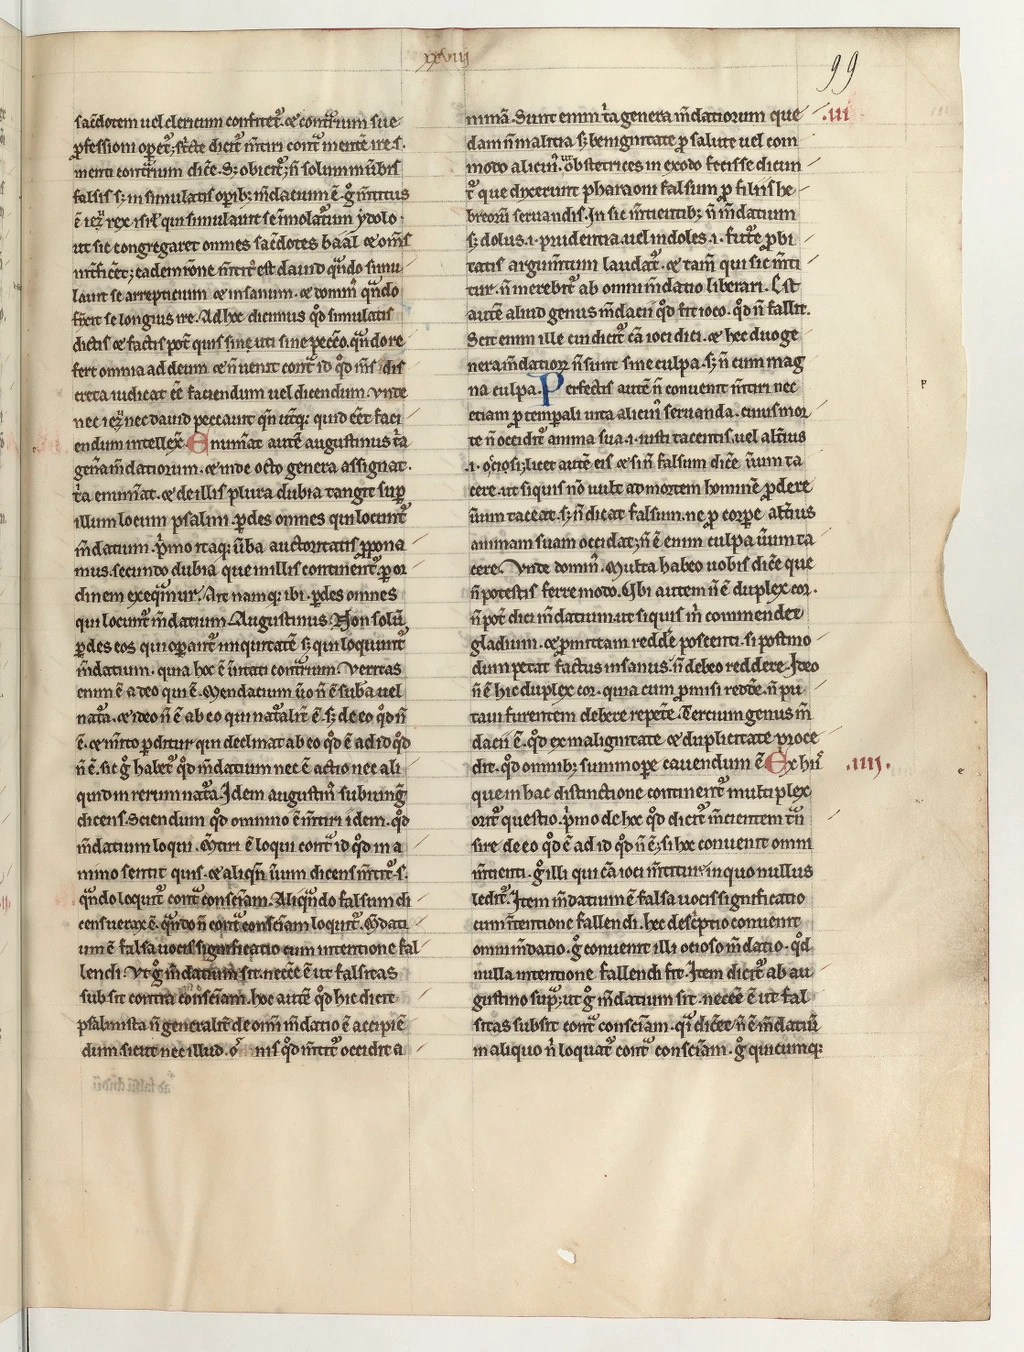 xxviij
99
sac̄dotem uel clericum confitet᷑. ⁊ cont᷑rium sue
ꝓfessioni opet᷑; sc̄te dicit᷑ m̄tiri cont᷑ mente ire .s.
menti cont᷑rium dic̄e. Sꝫ obicit᷑; n̄ solum in ūbis
falsis sꝫ in simulatis opibꝫ m̄dacium ē. g̊ m̄titus
ē ieꝫ rex isr̄l qui simulauit se īmolat᷑um ydolo.
ut sic congregaret omnes sac̄dotes baal ⁊ om̄s
int᷑ficeret; eadem rōne m̄titꝰ est dauid qn̄do simu
lauit se arrepticium ⁊ insanum. ⁊ domin̄ qn̄do
finxit se longius ire. Ad hec dicimus qd̊ simulatis
dictis ⁊ factis pot̄ quis sine uti sine pecc̄o. qn̄do re
fert omnia ad deum ⁊ n̄ uenit cont᷑ id qd̊ in dis
creta iudicat ēē faciendum uel dicendum. Vnde
nec ieꝫ nec dauid peccauit qn̄ ut᷑qꝫ quid ēēt faci
endum intellex̄. Enum̄at aut̄e augustinus t᷑a
gen̄a m̄datiorum. ⁊ inde octo genera assignat.
t᷑a enum̄at. ⁊ de illis plura dubia tangit sup
illum locum psalmi. ꝑdes omnes qui locunt᷑
m̄datium. p̄mo itaqꝫ ūba auctoritatis ꝓpona
mus. secundo dubia que in illis continent᷑ ꝑ or
dinem exeq̄mur. Ait namqꝫ ibi. ꝑdes omnes
qui locunt᷑ m̄datium Augustinus. Non solū
ꝑdes eos qui opant᷑ iniquitatē sꝫ qui loqunt᷑
m̄datium. quia hoc ē ūitati cont᷑rium. Veritas
enim ē a deo qui ē. Mendacium ūo n̄ ē suba uel
nat᷑a. ⁊ ideo n̄ ē ab eo qui nat᷑alit̄ ē. sꝫ de eo qd̊ n̄
ē. ⁊ m̄ito ꝑdit᷑ qui declinat ab eo qd̊ ē ad id qd̊
n̄ ē. sic g̊ habet᷑ qd̊ m̄datium nec ē actio nec ali
quid in rerum nat᷑a. Idem augustinꝰ subiunḡ
dicens. Sciendum qd̊ omnino ē m̄tiri idem. qd̊
m̄datium loqui. M̄tiri ē loqui cont᷑ id qd̊ in a
nimo sentit quis. ⁊ aliqn̄ ūum dicens m̄tit᷑ .s.
qn̄do loquit᷑ cont᷑ consciam̄. Aliqn̄do falsum di
cens uerax ē. qn̄do n̄ cont᷑ consciam̄ loquit᷑. M̄dati
um ē falsa uocis significatio cum intentione fal
lendi. Vt g̊ m̄datium sit. nec̄ee ē ut falsitas
subsit contra consciam̄. hoc aut̄e qd̊ hic dicit
psalmista n̄ generalit᷑ de om̄i m̄datio ē accipiē
dum. sicut nec illud. o nis qd̊ m̄tit᷑ occidit a
nimā. Sunt enim t᷑a genera m̄datiorum que
.iij
dam n̄ malitia sꝫ benignitate ꝓ salute uel com
modo alicuiꝰ. ut obstetrices in exodo fecisse dicun
t᷑ que dixerunt pharaoni falsum ꝓ filiis he
breorū seruandis. In sic m̄tientibꝫ n̄ m̄datium
sꝫ dolus .i. prudentia. uel indoles .i. fut᷑e ꝓbi
tatis argum̄tum laudat᷑. ⁊ tam̄ qui sic m̄ti
tur. n̄ mērebit᷑ ab omni m̄datio liberari. Est
autē aliud genus m̄dacii qd̊ fit ioco. qd̊ n̄ fallit.
Scit enim ille cui dicit᷑ cā ioci dici. ⁊ hec duo ge
nera m̄datioꝝ n̄ sunt sine culpa. sꝫ n̄ cum mag
na culpa. Perfectis autē n̄ conuenit m̄tiri nec
etiam ꝓ temꝑali uita alicuiꝰ seruanda. cuiꝰ mor
te n̄ occidit᷑ anima sua .i. iusti tacentis. uel alt̄ius
.i. ociosi; licet autē eis ⁊ si n̄ falsum dic̄e ūum ta
cere. ut si quis nō uult ad mortem hominē ꝓdere
ūum taceat. sꝫ n̄ dicat falsum. ne ꝓ corpe alt̄ius
animam suam occidat; n̄ ē enim culpa ūum ta
cere. Vnde dominꝰ. Multa habeo uobis dic̄e que
n̄ potestis ferre modo. Vbi autem n̄ ē duplex cor.
n̄ pot̄ dici m̄datium. ut si quis m̄ commendet
gladium. ⁊ ꝓmittam redde̅ poscenti. si postmo
dum petat factus insanus. n̄ debeo reddere. Ideo
n̄ ē hic duplex cor. quia cum ꝓmisi redde̅. n̄ pu
taui furentem debere repete̅. Tercium genus m̄
dacii ē. qd̊ ex malignitate ⁊ duplicitate proce
dit. qd̊ omnibꝫ summope cauendum ē Ex hiis
.iiij.
que in hac distinctione continent᷑ multiplex
orit᷑ questio. p̄mo de hoc qd̊ dicit᷑ m̄cientem t᷑n
sire de eo qd̊ ē ad id qd̊ n̄ ē; si hoc conuenit omni
m̄tienti. g̊ illi qui cā ioci m̄titur in quo nullus
ledit᷑. Item m̄datium ē falsa uocis significatio
cum ītentione fallendi. hec desc̄ptio conuenit
omni m̄datio. g̊ conuenit illi ocioso m̄datio. qd̊
nulla intentione fallendi fit. Item dicit᷑ ab au
gustino sup̄; ut g̊ m̄datium sit. nec̄ee ē ut fal
sitas subsit cont᷑ consciam̄. qd̊ diceret n̄ ē m̄datiū
in aliquo n̄ loquat᷑ cont᷑ consciam̄. g̊ quicumqꝫ